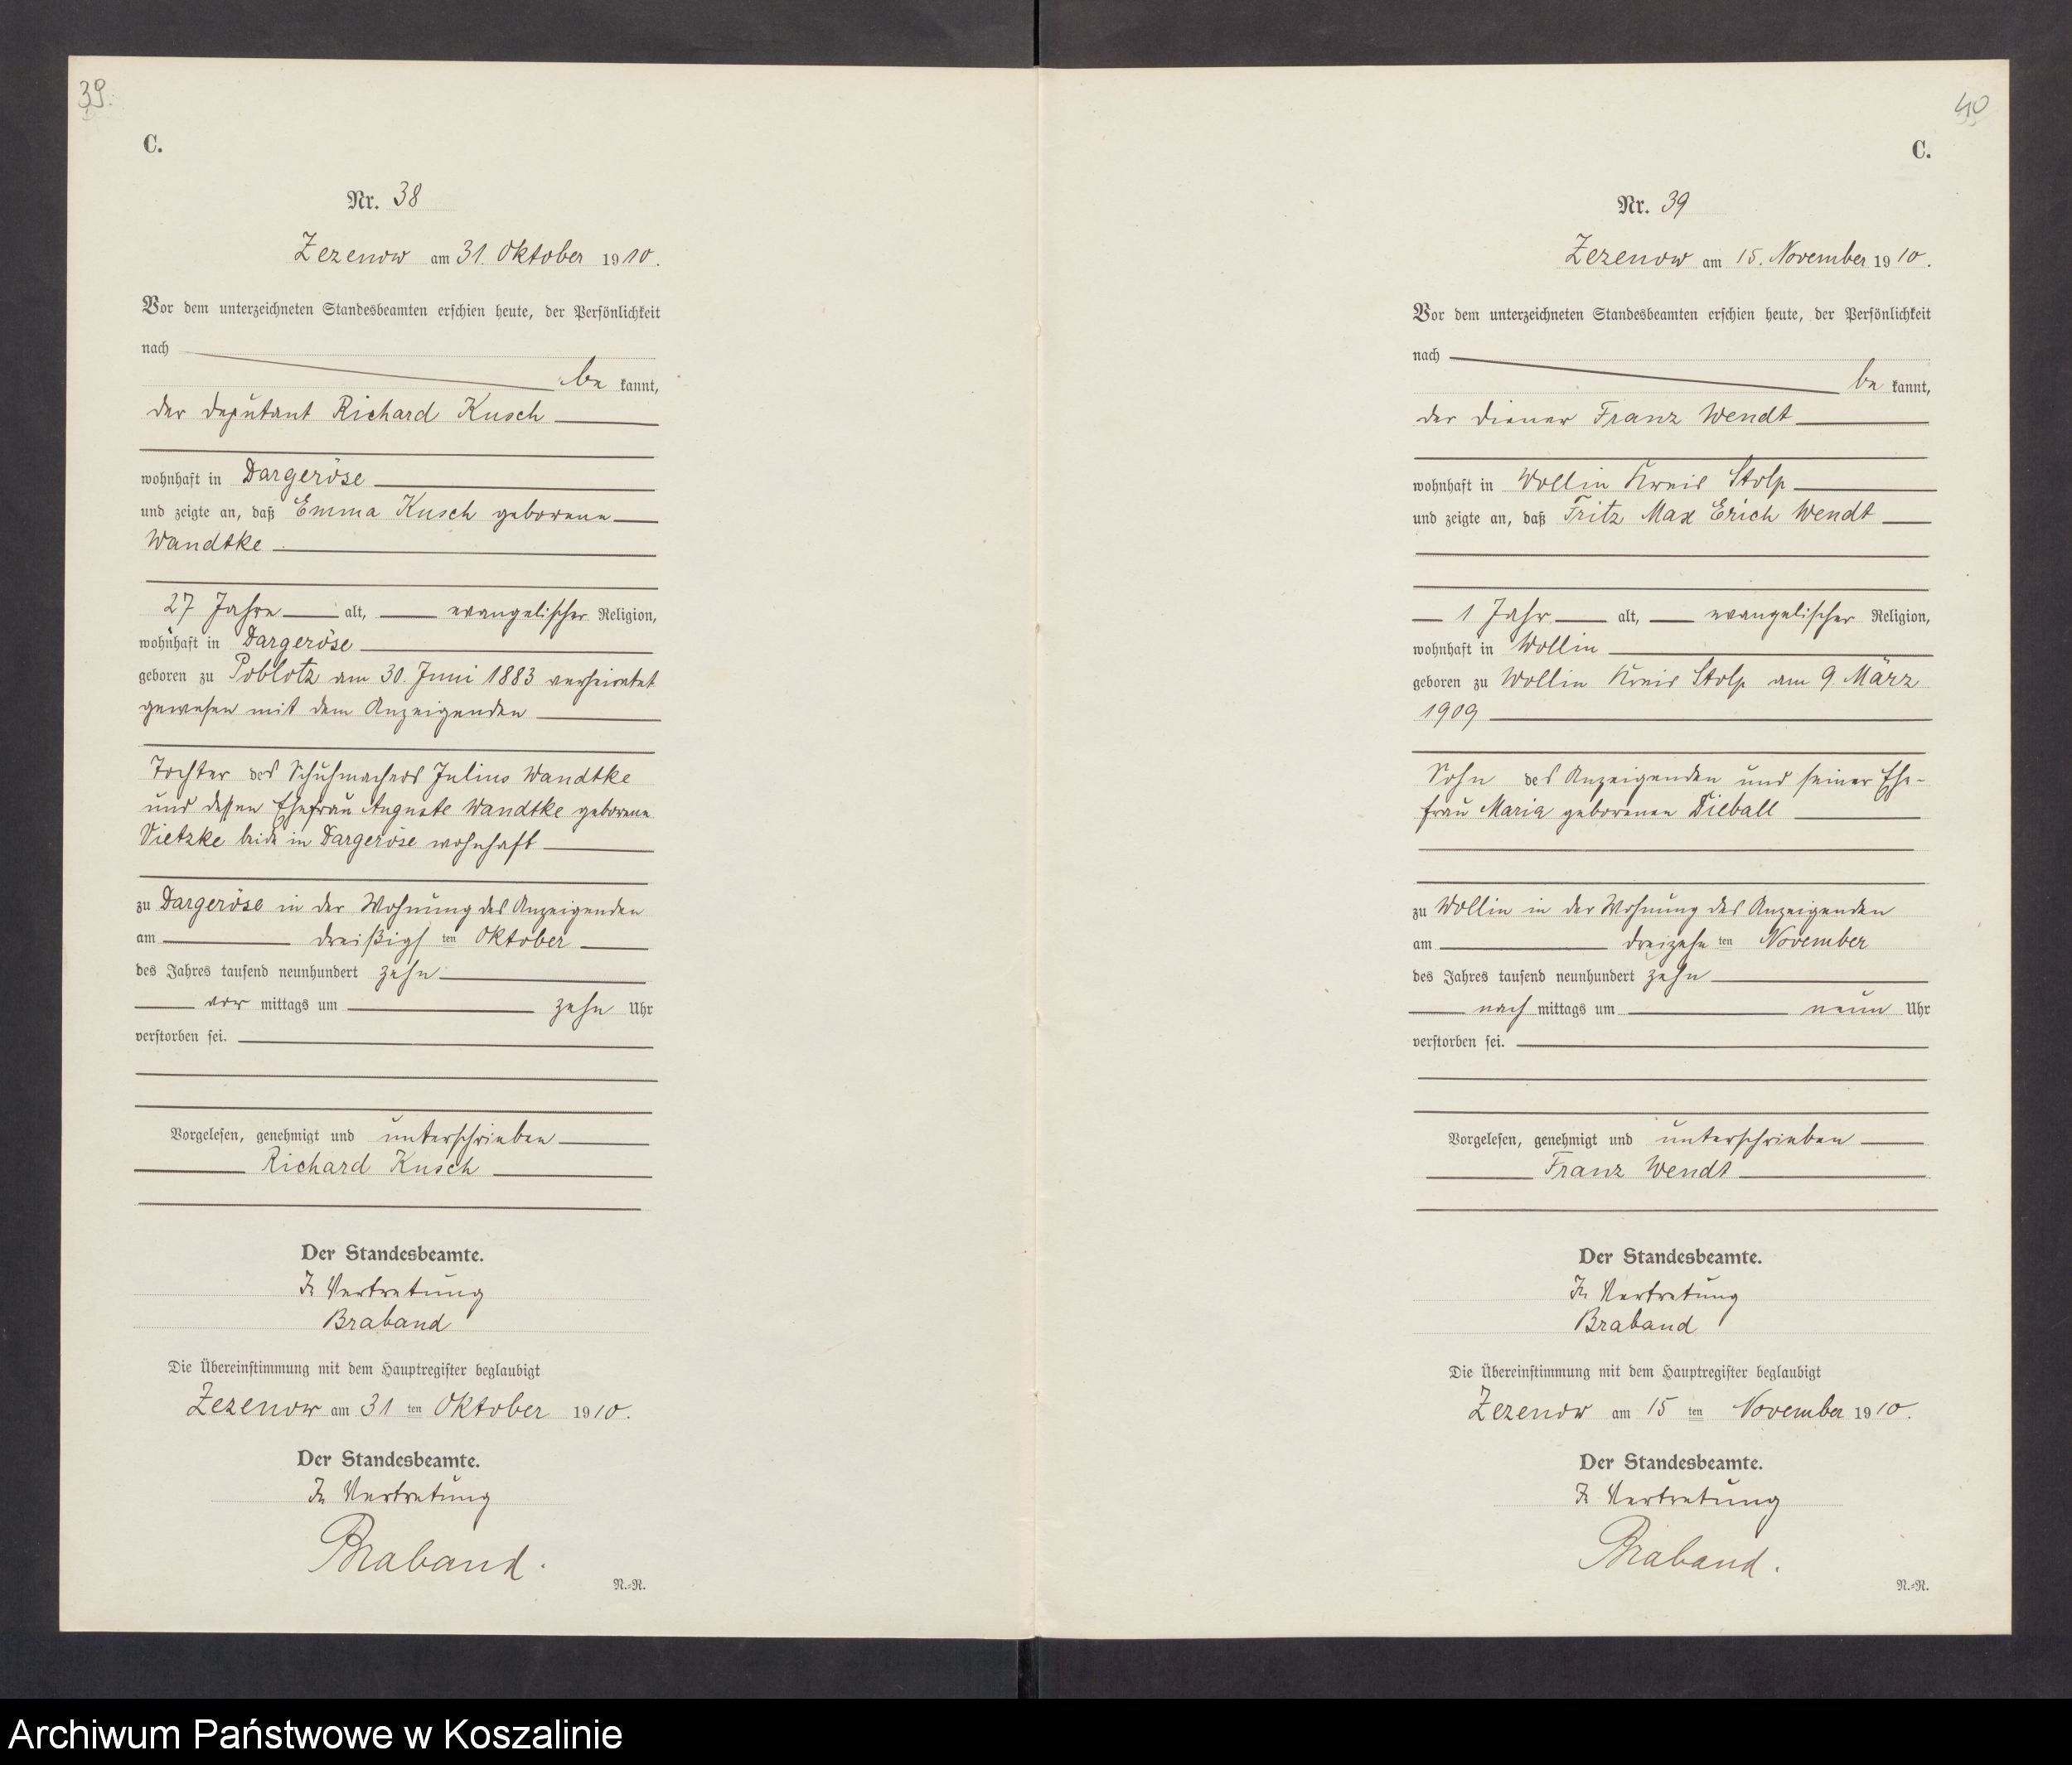 39.
C.
Nr. 38
Zezenow am 31. Oktober 1910.
Vor dem unterzeichneten Standesbeamten erschien heute, der Persönlichkeit
nach
be kannt,
der Deputant Richard Kusch
wohnhaft in Dargeröse
und zeigte an, daß Emma Kusch geborene
Wandtke
27 Jahre alt, evangelischer Religion,
wohnhaft in Dargeröse
geboren zu Poblotz am 30. Juni 1883 verheiratet
gewesen mit dem Anzeigenden
Tochter des Schuhmachers Julius Wandtke
und dessen Ehefrau Auguste Wandtke geborene
Vietzke beide in Dargeröse wohnhaft
zu Dargeröse in der Wohnung des Anzeigenden
am dreißigs ten Oktober
des Jahres tausend neunhundert zehn
vor mittags um zehn Uhr
verstorben sei.
Vorgelesen, genehmigt und unterschrieben
Richard Kusch
Der Standesbeamte.
In Vertretung
Braband
Die Übereinstimmung mit dem Hauptregister beglaubigt
Zezenow am 31 ten Oktober 1910.
Der Standesbeamte.
In Vertretung
Braband.
N.-R.
40
C.
Nr. 39
Zezenow am 15. November 1910.
Vor dem unterzeichneten Standesbeamten erschien heute, der Persönlichkeit
nach
be kannt,
der Diener Franz Wendt
wohnhaft in Wollin Kreis Stolp
und zeigte an, daß Fritz Max Erich Wendt
1 Jahr alt, evangelischer Religion,
wohnhaft in Wollin
geboren zu Wollin Kreis Stolp am 9. März
1909
Sohn des Anzeigenden und seiner Ehe-
frau Maria geborenen Dieball
zu Wollin in der Wohnung des Anzeigenden
am dreizehn ten November
des Jahres tausend neunhundert zehn
nach mittags um neun Uhr
verstorben sei.
Vorgelesen, genehmigt und unterschrieben
Franz Wendt
Der Standesbeamte.
In Vertretung
Braband
Die Übereinstimmung mit dem Hauptregister beglaubigt
Zezenow am 15 ten November 1910.
Der Standesbeamte.
In Vertretung
Braband.
N.-R.
Archiwum Państwowe w Koszalinie